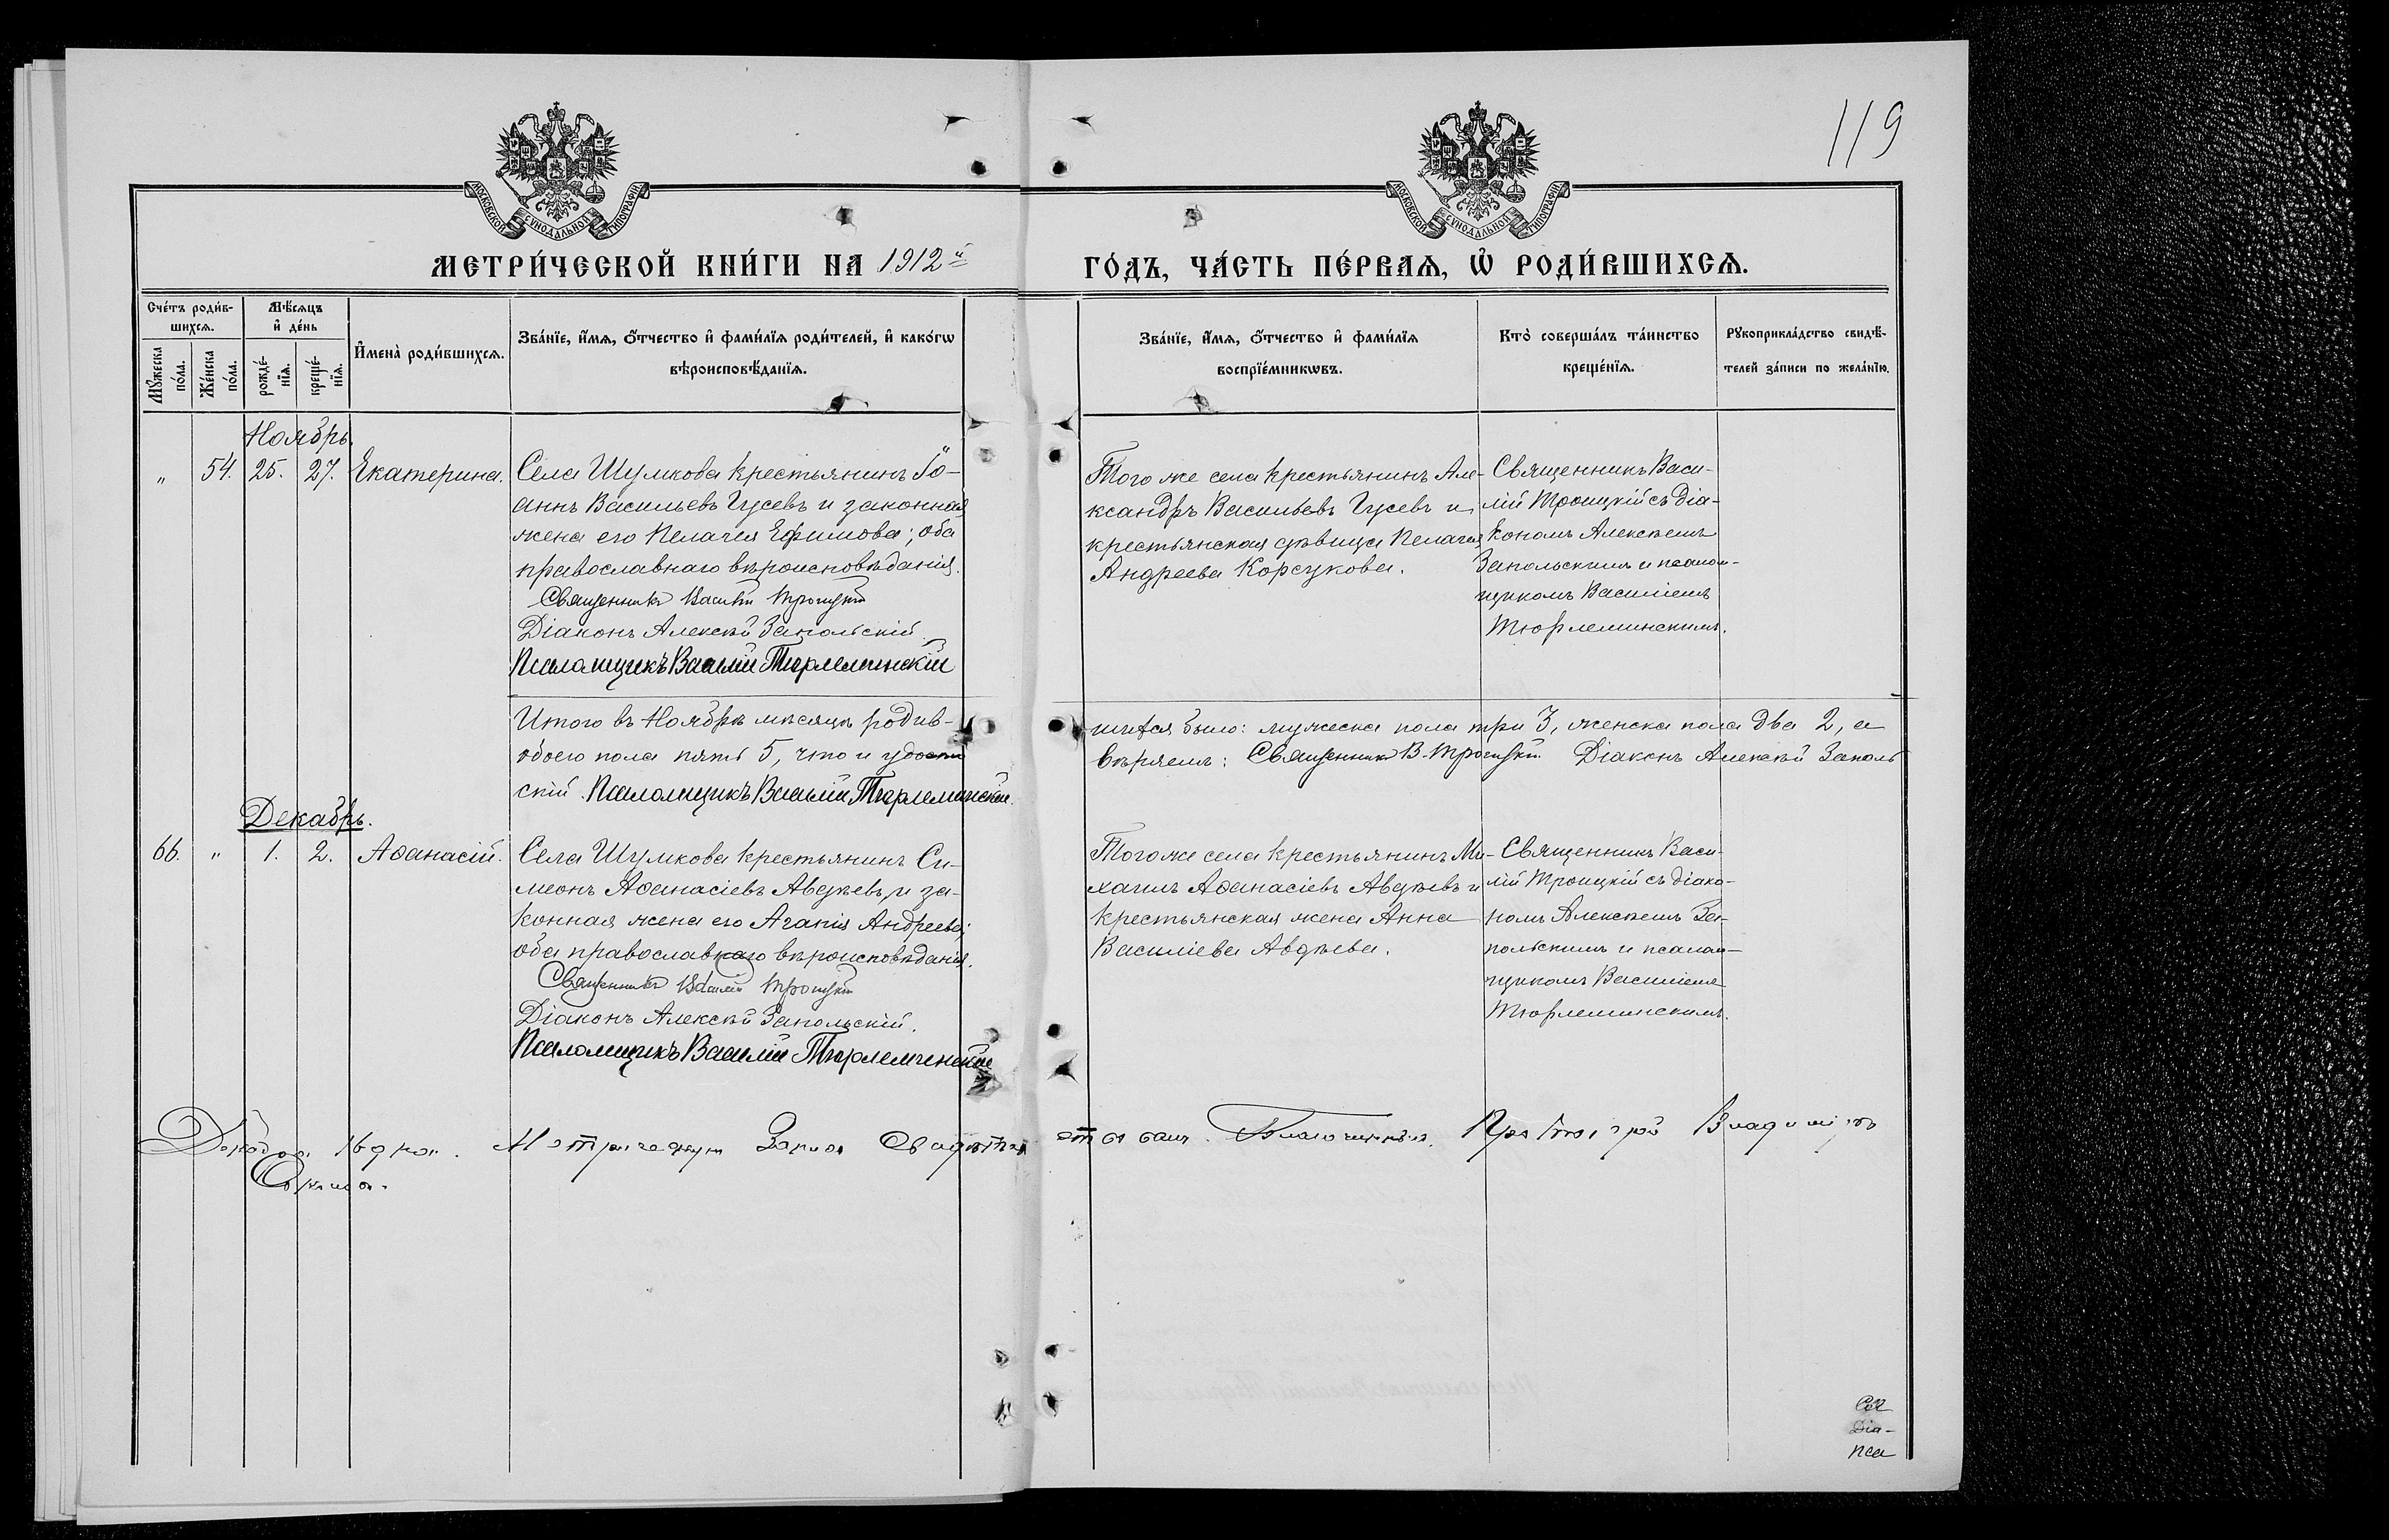 119
МОСКОВСКОЙ СѴНОДАЛЬНОЙ ТИПОГРАФІИ
МОСКОВСКОЙ СѴНОДАЛЬНОЙ ТИПОГРАФІИ
МЕТРИ́ЧЕСКОЙ КНИ́ГИ НА 1912й
ГО́ДЪ, ЧА́СТЬ ПЕ́РВАѦ, Ѡ҆ РОДИ́ВШИХСѦ.
Сче́тъ роди́в-
шихсѧ.
Мꙋ́жеска
по́ла.
Же́нска
по́ла.
Мѣ́сѧцъ
и҆ де́нь
рожде́-
нїѧ.
креще́-
нїѧ.
И҆мена̀ роди́вшихсѧ.
Зва́нїе, и҆́мѧ, ѻ҆́тчество и҆ фами́лїѧ роди́телей, и҆ како́гѡ
вѣроисповѣ́данїѧ.
Зва́нїе, и҆́мѧ, ѻ҆́тчество и҆ фами́лїѧ
воспрїе́мникѡвъ.
Кто̀ соверша́лъ та́инство
креще́нїѧ.
Рꙋкоприкла́дство свидѣ́-
телей за́писи по жела́нїю.
Ноябрь.
" 54. 25. 27. Екатерина.
Села Шумкова крестьянинъ Іо-
аннъ Васильевъ Гусевъ и законная
жена его Пелагея Ефимова; оба
православнаго вѣроисповѣданія.
Священникъ Василій Троицкій
Діаконъ Алексѣй Запольскій.
Псаломщикъ Василій Тюрлеминскій
Того же села крестьянинъ Але-
ксандръ Васильевъ Гусевъ и
крестьянская дѣвица Пелагея
Андреева Корсукова.
Священникъ Васи-
лій Троицкій съ діа-
кономъ Алексѣемъ
Запольскимъ и псалом-
щикомъ Василіемъ
Тюрлеминскимъ.
Итого въ Ноябрѣ мѣсяцѣ родив-
шихся было: мужеска пола три 3, женска пола два 2, а
обоего пола пять 5, что и удосто
вѣряемъ: Священникъ В. Троицкій Діаконъ Алексѣй Заполь
скій. Псаломщикъ Василій Тюрлеминскій.
Декабрь.
66. " 1. 2. Аѳанасій.
Села Шумкова крестьянинъ Си-
меонъ Аѳанасіевъ Авдѣевъ, и за-
конная жена его Агапія Андреева;
оба православнаго вѣроисповѣданія.
Священникъ Василій Троицкій
Діаконъ Алексѣй Запольскій.
Псаломщикъ Василій Тюрлеминскій
Того же села крестьянинъ Ми-
хаилъ Аѳанасіевъ Авдѣевъ и
крестьянская жена Анна
Василіева Авдѣева.
Священникъ Васи-
лій Троицкій съ діако-
номъ Алексѣемъ За-
польскимъ и псалом-
щикомъ Василіемъ
Тюрлеминскимъ.
Декабря 16 дня. Метрическую Запись Свидѣтель
ствовалъ. Благочинный, Протоіерей Владиміръ
Свя
Діа-
пса